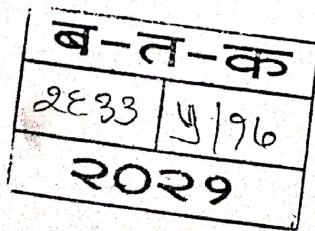 ब-त-क
२६३३ ५/१७
२०२१